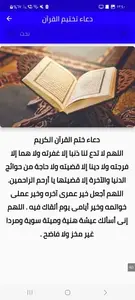 دعاء تختيم القرآن
بحث
دعاء ختم القرآن الكريم
اللهم لا تدع لنا ذنبا إلا غفرته ولا هما إلا
فرجته ولا دينا إلا قضيته ولا حاجة من حوائج
الدنيا والآخرة إلا قضيتها يا أرحم الراحمين.
اللهم أجعل خير عمري آخره وخير عملي
خواتمه وخير أيامي يوم ألقاك فيه . اللهم
إني أسألك عيشة هنية وميتة سوية ومردا
غير مخز ولا فاضح .